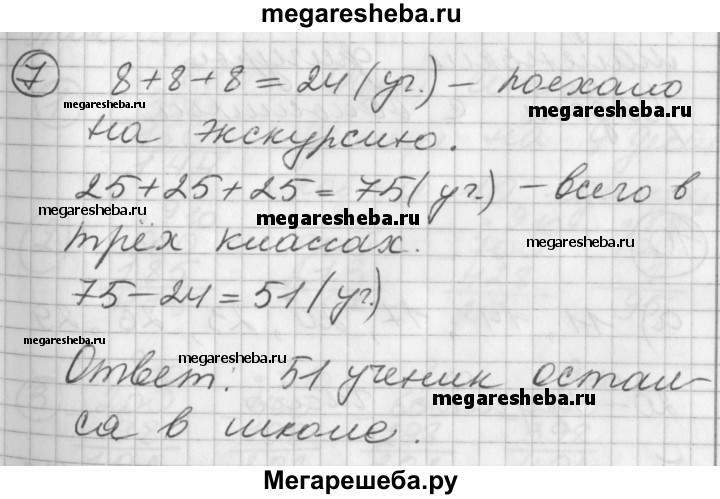 megaresheba.ru
7 8+8+8=24 (уч.) – поехало
megaresheba.ru
megaresheba.ru
на экскурсию.
25+25+25=75 (уч.) – всего в
megaresheba.ru
megaresheba.ru
трёх классах.
megaresheba.ru
75–24=51 (уч.)
megaresheba.ru
megaresheba.ru
Ответ: 51 ученик остал-
megaresheba.ru
ся в школе.
Мегарешеба.ру